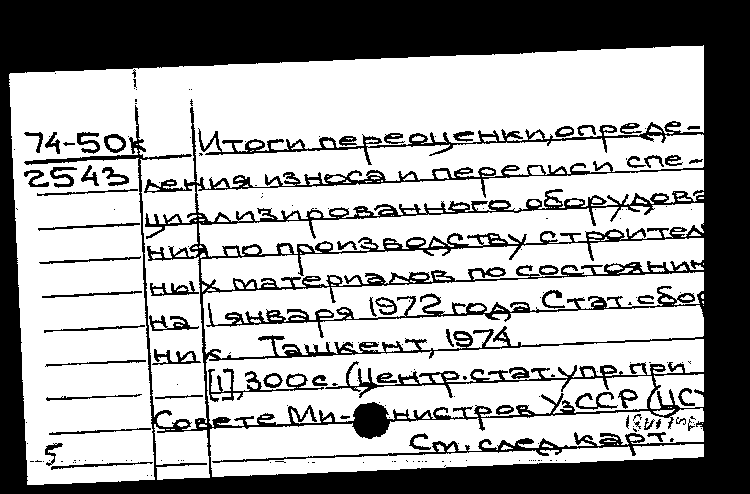 74-50к Итоги переоценки, опреде-
2543 ления износа и переписи спе-
циализированного оборудова
ния по производству строител
ных материалов по состоянию
на 1 января 1972 года. Стат. сбор
ник. Ташкент, 1974.
[1], 300 с. (Центр. стат. упр. при
Совете Ми-нистров УзССР (ЦСУ
См. след. карт.
5